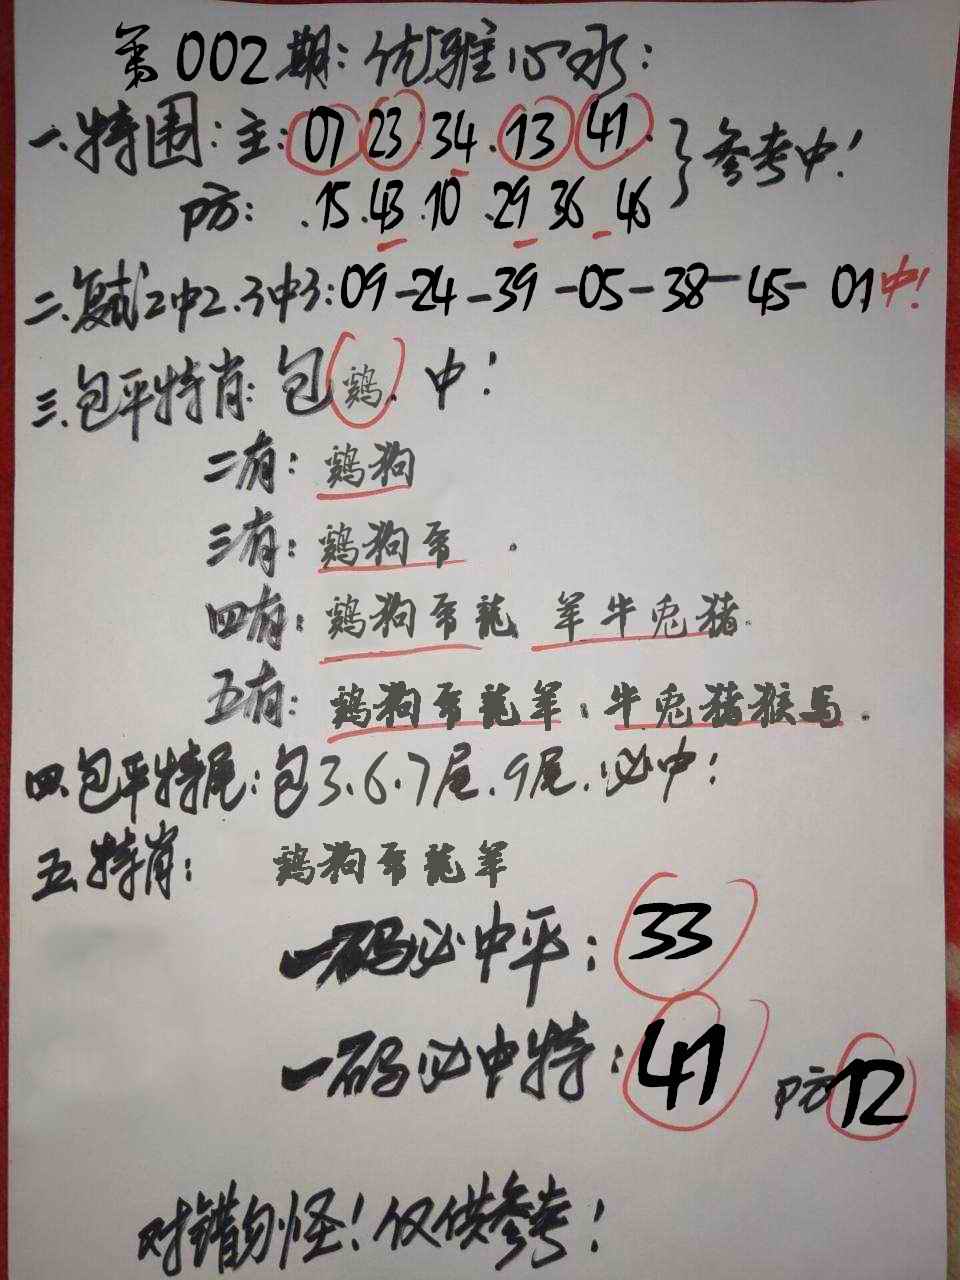 第002期:优雅心水:
一.特围:主:07 23 34.13 41.
防:.15.43.10.29 36 46
参考中!
二.复式2中2.3中3:09-24-39-05-38-45-01中!
三.包平特肖:包鸡.中!
二有:鸡狗
三有:鸡狗帝.
四有:鸡狗帝龍 羊牛兎猪.
五有:鸡狗帝龍羊:牛兎猪猴马.
四.包平特尾:包3.6.7尾.9尾.必中!
五.特肖: 鸡狗帝龍羊
一码必中平:33
一码必中特:41 防12
对错勿怪!仅供参考!